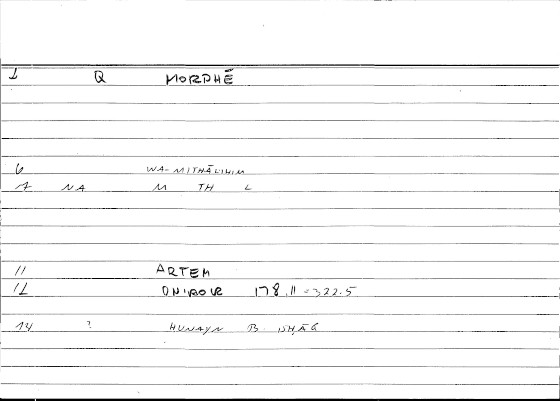 1 Q MORPHĒ
6 WA-MITHĀLIHIM
7 NA M TH L
11 ARTEM
12 ONIROCR 178.11 = 322.5
14 ? ḤUNAYN B. ISḤĀQ